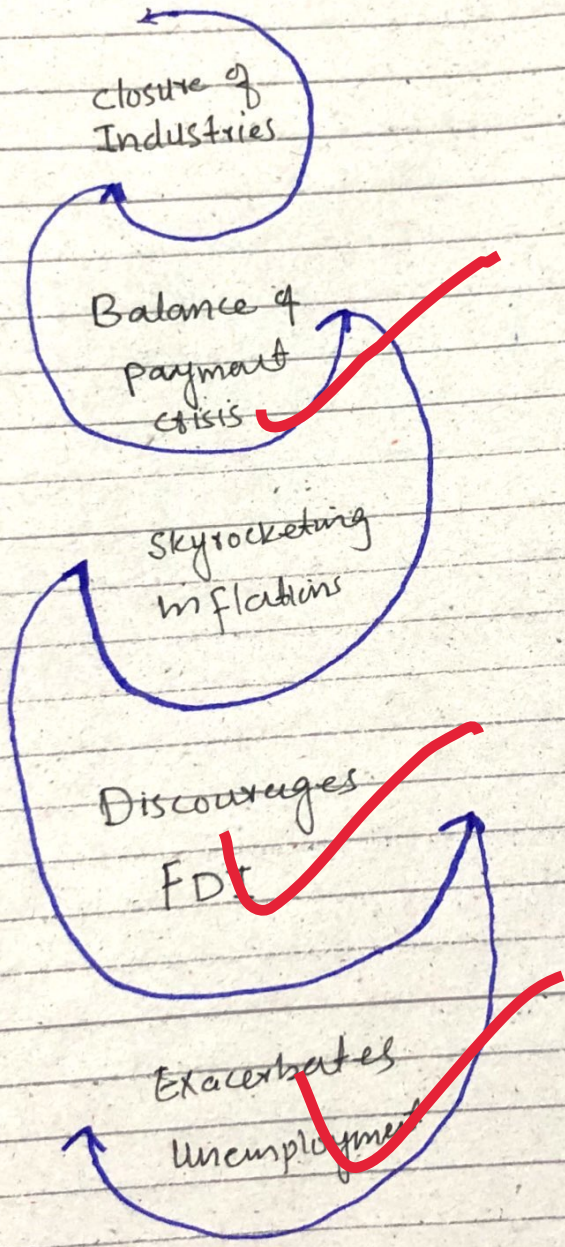 closure of
Industries
Balance of
payment
crisis
Skyrocketing
inflations
Discourages
FDI
Exacerbates
Unemployment